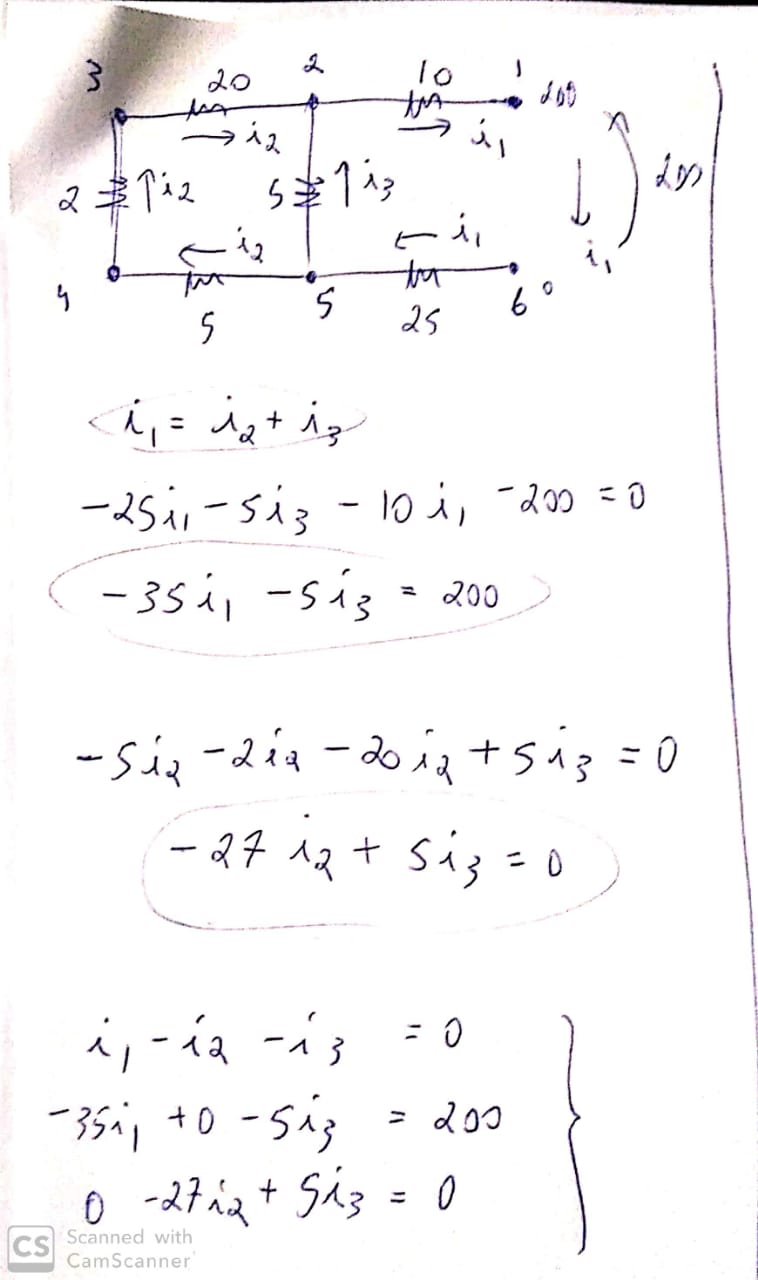 3 20 2 10 1 200
→ i₂ → i₁
2 ↑i₂ 5 ↑i₃ ↓ 200
← i₂ ← i₁ i₁
4 5 6 0
5 25
i₁ = i₂ + i₃
-25i₁ - 5i₃ - 10i₁ - 200 = 0
-35i₁ - 5i₃ = 200
-5i₂ - 2i₂ - 20i₂ + 5i₃ = 0
-27i₂ + 5i₃ = 0
i₁ - i₂ - i₃ = 0
-35i₁ + 0 - 5i₃ = 200
0 -27i₂ + 5i₃ = 0
CS Scanned with
CamScanner